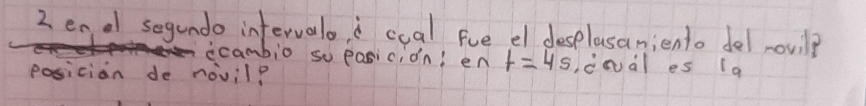 2 en el segundo intervalo, ¿ cual fue el desplasamiento del movil?
¿cambio su posición; en t=4s, ¿cuál es la
posición de móvil?